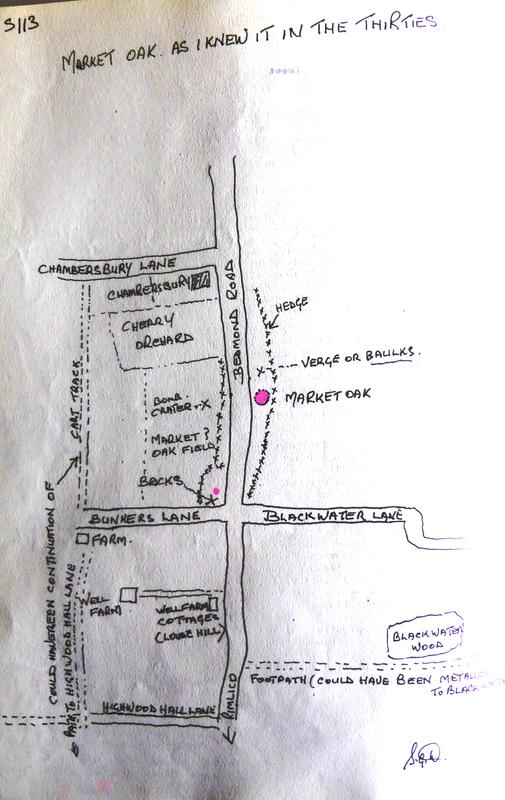 S113
MARKET OAK. AS I KNEW IT IN THE THIRTIES.
CHAMBERSBURY LANE
CHAMBERSBURY
BEDMOND ROAD
HEDGE
CHERRY
ORCHARD
VERGE OR BAULKS.
CART TRACK
MARKET OAK
BOMB
CRATER → X
MARKET ?
OAK FIELD
BACKS
BUNKERS LANE
BLACKWATER LANE
FARM.
COULD HAVE BEEN CONTINUATION OF
PATH TO HIGHWOOD HALL LANE
WELL
FARM
WELLFARM
COTTAGES
(LOUSE HILL)
BLACKWATER
WOOD
FOOTPATH (COULD HAVE BEEN
TO
PIMLICO
HIGHWOOD HALL LANE